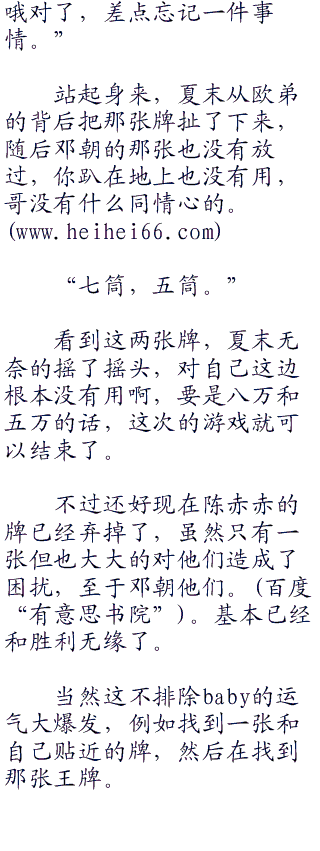 哦对了，差点忘记一件事
情。”
站起身来，夏末从欧弟
的背后把那张牌扯了下来，
随后邓朝的那张也没有放
过，你趴在地上也没有用，
哥没有什么同情心的。
(www.heihei66.com)
“七筒，五筒。”
看到这两张牌，夏末无
奈的摇了摇头，对自己这边
根本没有用啊，要是八万和
五万的话，这次的游戏就可
以结束了。
不过还好现在陈赤赤的
牌已经弃掉了，虽然只有一
张但也大大的对他们造成了
困扰，至于邓朝他们。(百度
“有意思书院”)。基本已经
和胜利无缘了。
当然这不排除baby的运
气大爆发，例如找到一张和
自己贴近的牌，然后在找到
那张王牌。